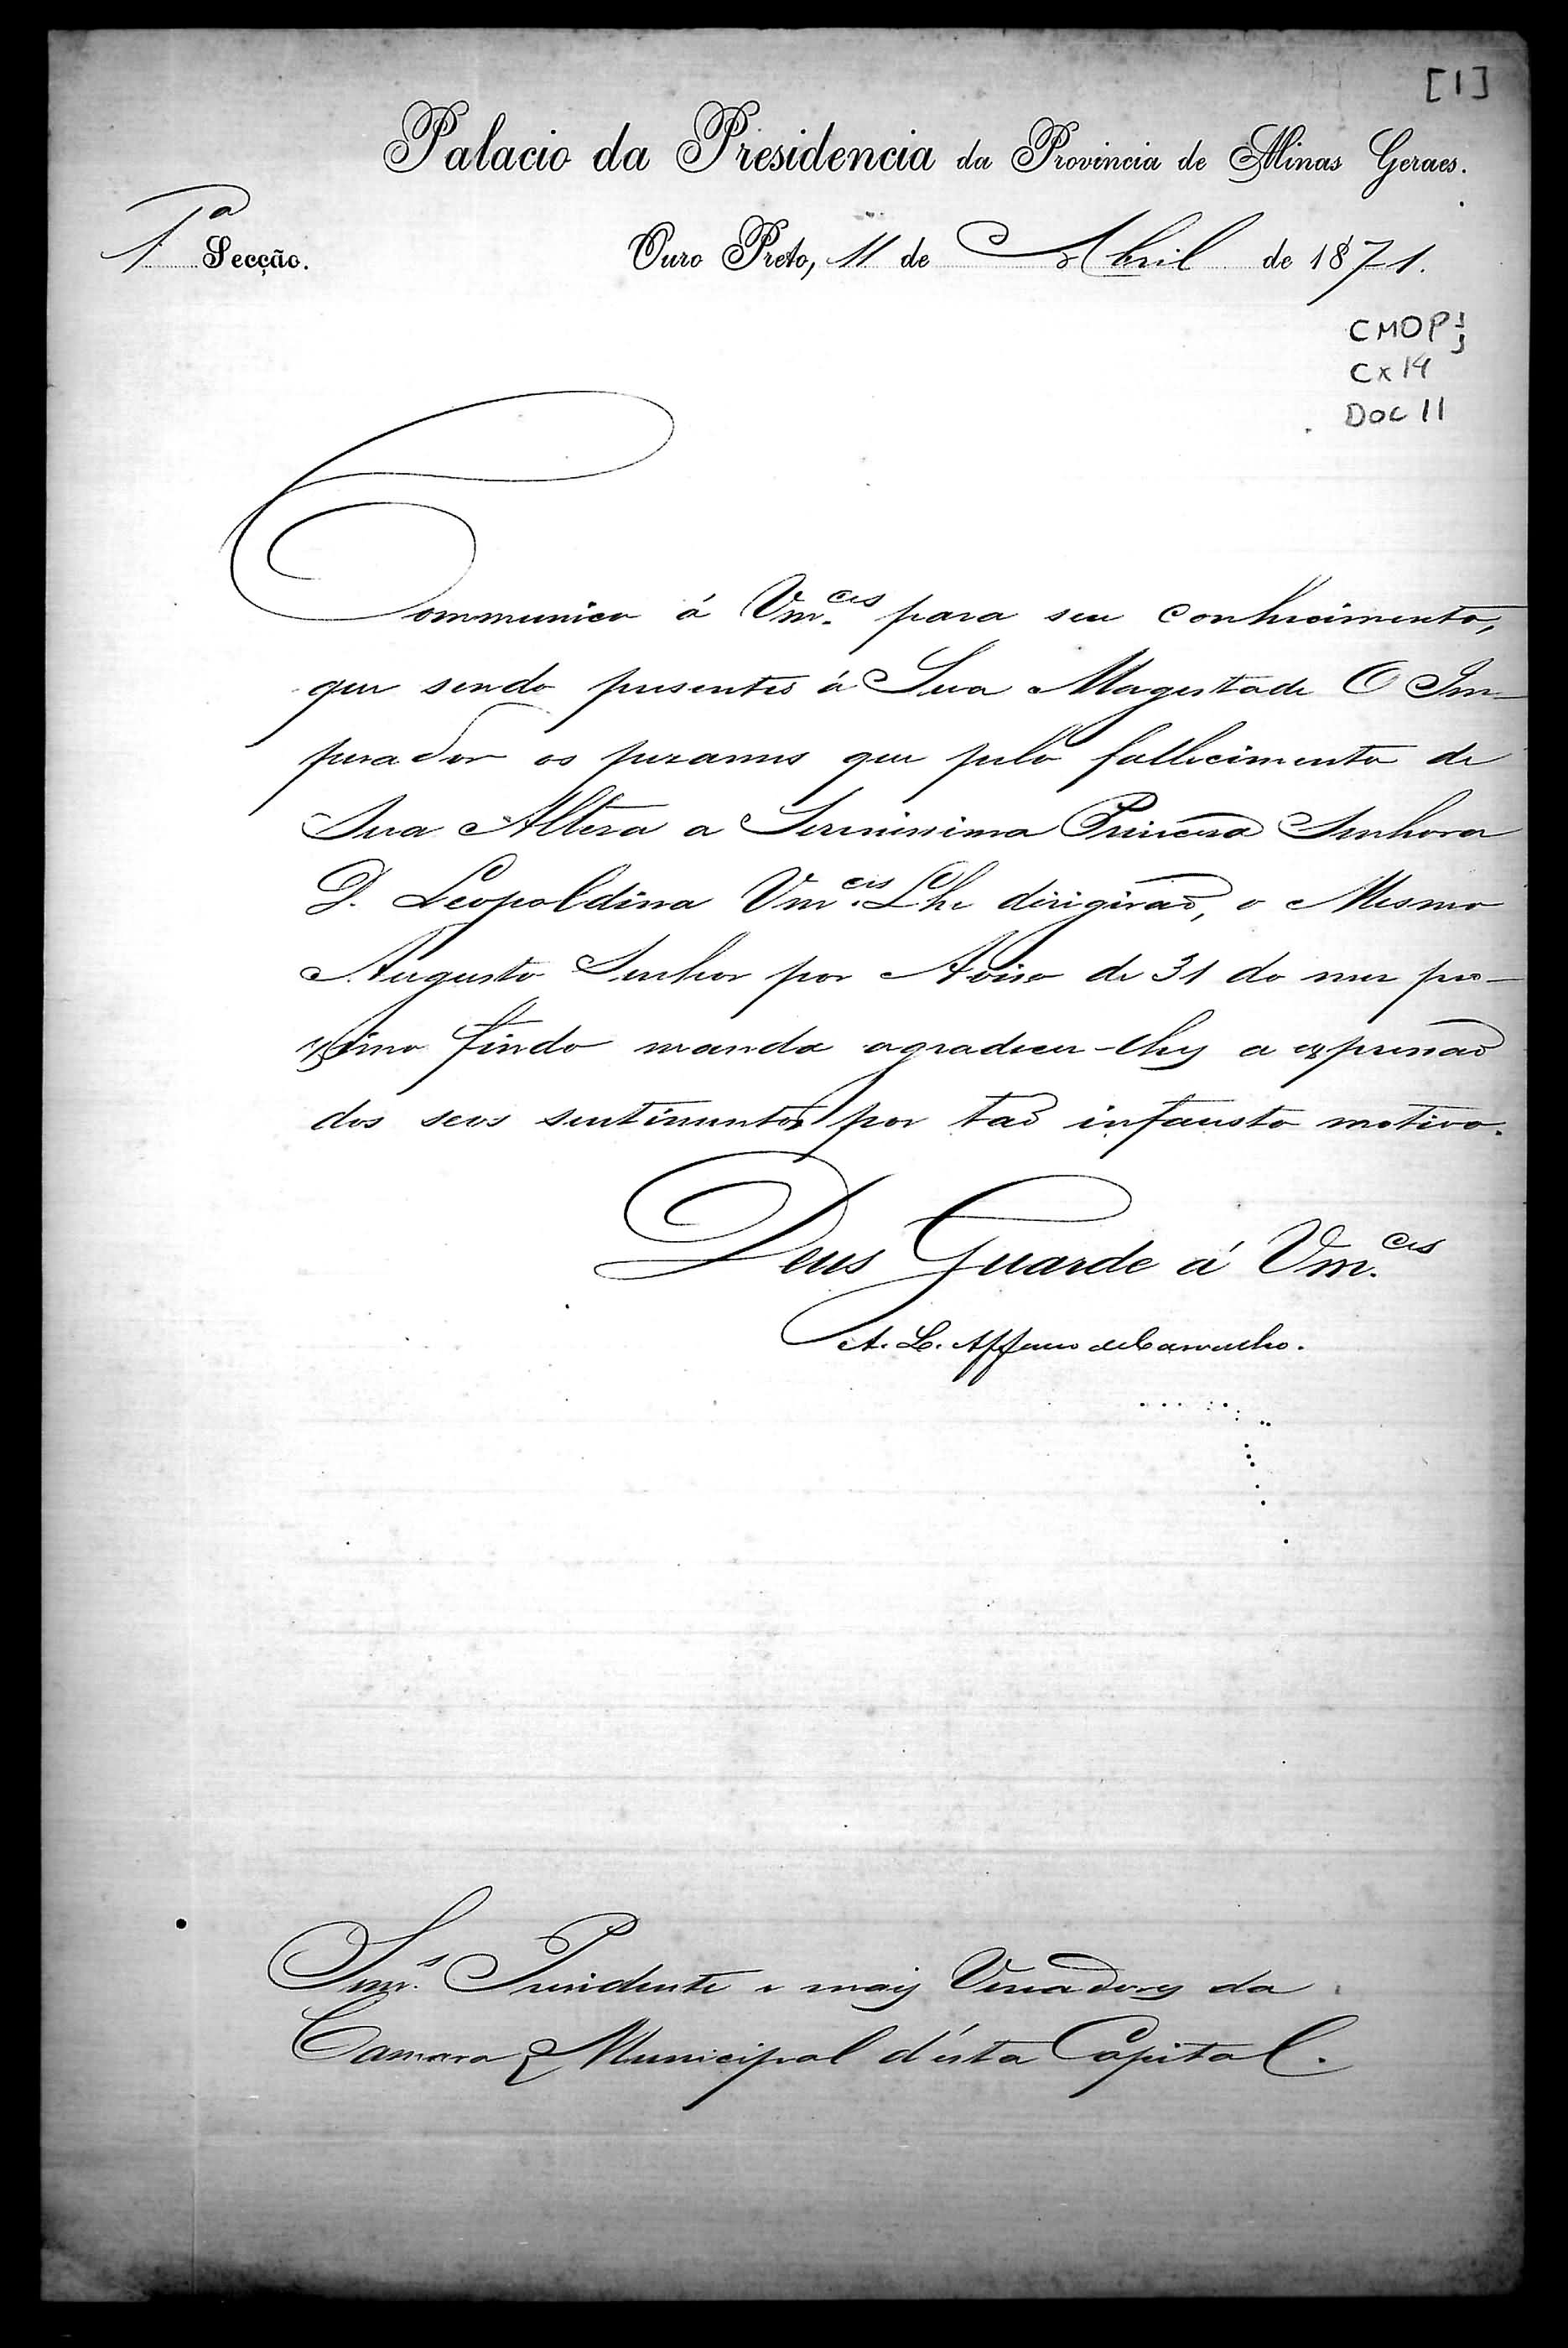 [1]
Palacio da Presidencia da Provincia de Minas Geraes.
1ª Secção.
Ouro Preto, 11 de Abril de 1871.
CMOP
Cx 14
DOC 11
Communico á Vm.ces para seu conhecimento,
que sendo presentes á Sua Magestade O Im-
perador os pezames que pelo fallecimento de
Sua Alteza a Serenissima Princeza Senhora
D. Leopoldina Vm.ces Lhe dirigirão, o Mesmo
Augusto Senhor por Aviso de 31 do mez pro-
ximo findo manda agradecer-lhes a expressão
dos seos sentimentos por tão infausto motivo.
Deus Guarde á Vm.ces
A. L. Affonso de Carvalho.
Snrs. Presidente e mais Vereadores da
Camara Municipal d'esta Capital.